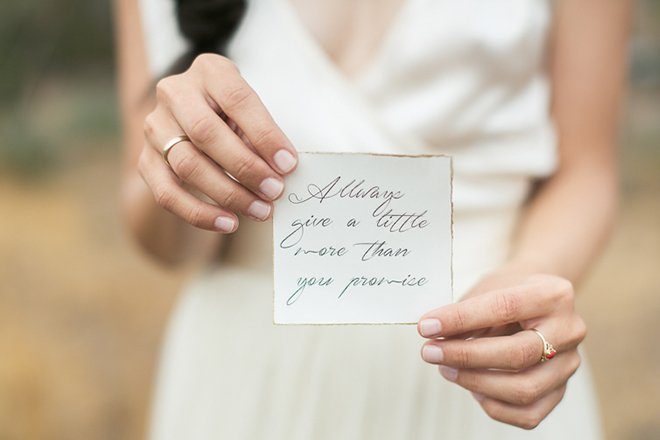 Allways
give a little
more than
you promise